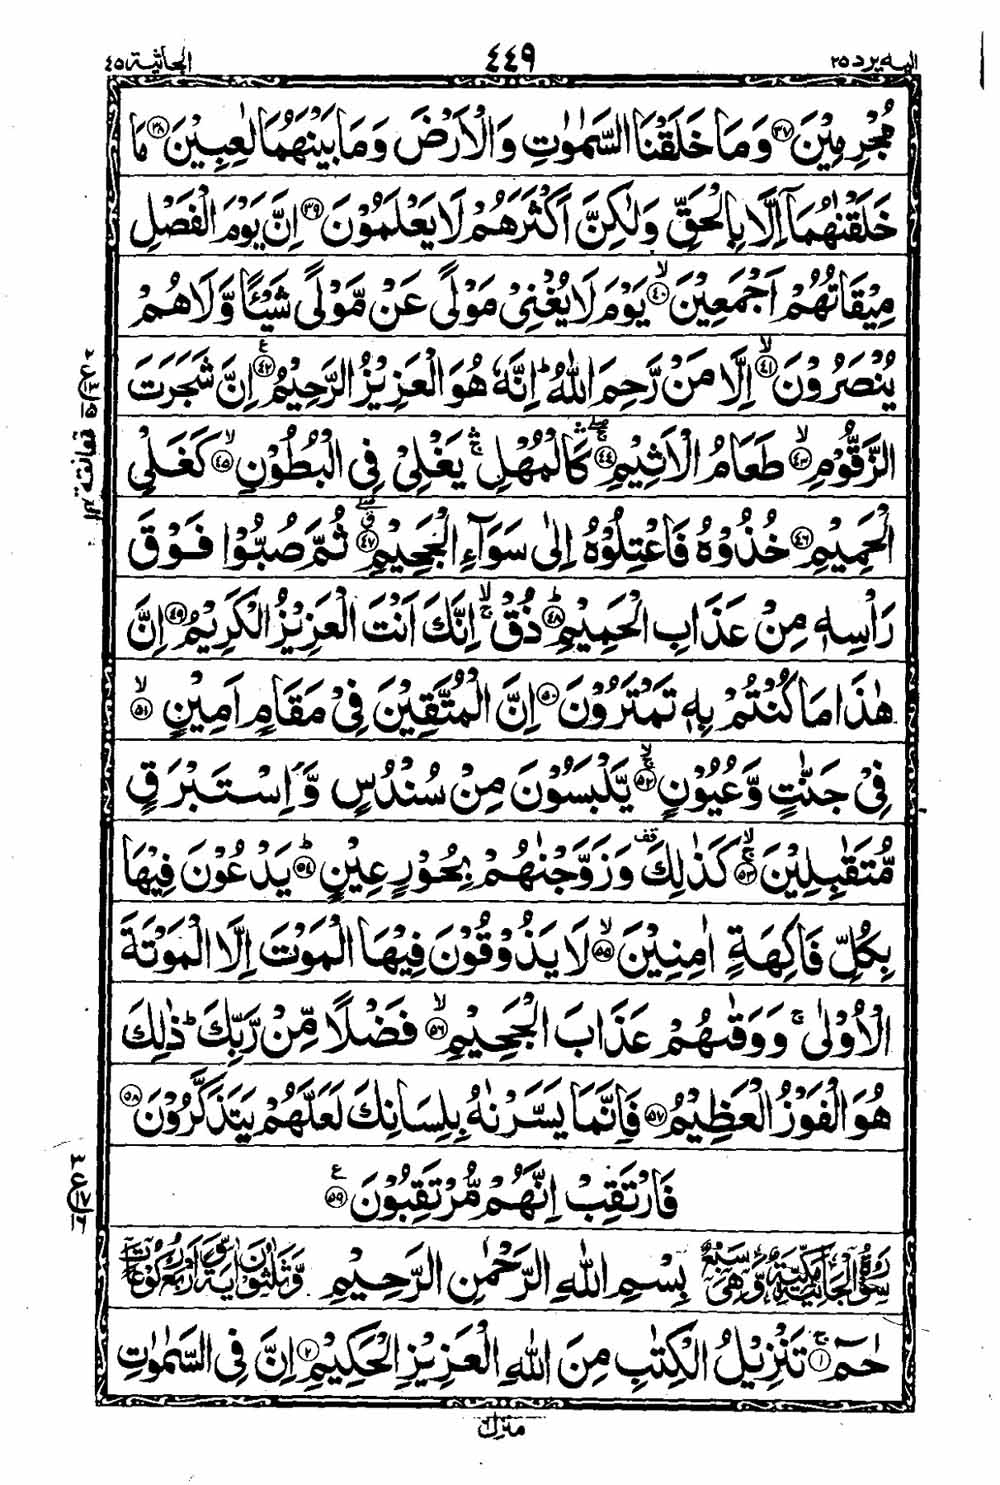 الیه یرد ۲۵
٤٤٩
الجاثیة ٤٥
مُجْرِمِيْنَ ﴿٣٧﴾ وَمَا خَلَقْنَا السَّمٰوٰتِ وَالْاَرْضَ وَمَا بَيْنَهُمَا لٰعِبِيْنَ ﴿٣٨﴾ مَا
خَلَقْنٰهُمَاۤ اِلَّا بِالْحَقِّ وَلٰكِنَّ اَكْثَرَهُمْ لَا يَعْلَمُوْنَ ﴿٣٩﴾ اِنَّ يَوْمَ الْفَصْلِ
مِيْقَاتُهُمْ اَجْمَعِيْنَ ۙ﴿٤٠﴾ يَوْمَ لَا يُغْنِيْ مَوْلًى عَنْ مَّوْلًى شَيْـًٔا وَّلَا هُمْ
يُنْصَرُوْنَ ۙ﴿٤١﴾ اِلَّا مَنْ رَّحِمَ اللّٰهُ ؕ اِنَّهٗ هُوَ الْعَزِيْزُ الرَّحِيْمُ ﴿٤٢﴾ع اِنَّ شَجَرَتَ
الزَّقُّوْمِ ۙ﴿٤٣﴾ طَعَامُ الْاَثِيْمِ ﴿٤٤﴾ كَالْمُهْلِ ۛۚ يَغْلِيْ فِي الْبُطُوْنِ ۙ﴿٤٥﴾ كَغَلْيِ
الْحَمِيْمِ ﴿٤٦﴾ خُذُوْهُ فَاعْتِلُوْهُ اِلٰى سَوَآءِ الْجَحِيْمِ ﴿٤٧﴾ ثُمَّ صُبُّوْا فَوْقَ
رَاْسِهٖ مِنْ عَذَابِ الْحَمِيْمِ ؕ﴿٤٨﴾ ذُقْ ۙۚ اِنَّكَ اَنْتَ الْعَزِيْزُ الْكَرِيْمُ ﴿٤٩﴾ اِنَّ
هٰذَا مَا كُنْتُمْ بِهٖ تَمْتَرُوْنَ ﴿٥٠﴾ اِنَّ الْمُتَّقِيْنَ فِيْ مَقَامٍ اَمِيْنٍ ۙ﴿٥١﴾
فِيْ جَنّٰتٍ وَّعُيُوْنٍ ۙۚ﴿٥٢﴾ يَّلْبَسُوْنَ مِنْ سُنْدُسٍ وَّاِسْتَبْرَقٍ
مُّتَقٰبِلِيْنَ ۙۚ﴿٥٣﴾ كَذٰلِكَ قف وَزَوَّجْنٰهُمْ بِحُوْرٍ عِيْنٍ ؕ﴿٥٤﴾ يَدْعُوْنَ فِيْهَا
بِكُلِّ فَاكِهَةٍ اٰمِنِيْنَ ۙ﴿٥٥﴾ لَا يَذُوْقُوْنَ فِيْهَا الْمَوْتَ اِلَّا الْمَوْتَةَ
الْاُوْلٰى ۚ وَوَقٰىهُمْ عَذَابَ الْجَحِيْمِ ۙ﴿٥٦﴾ فَضْلًا مِّنْ رَّبِّكَ ؕ ذٰلِكَ
هُوَ الْفَوْزُ الْعَظِيْمُ ﴿٥٧﴾ فَاِنَّمَا يَسَّرْنٰهُ بِلِسَانِكَ لَعَلَّهُمْ يَتَذَكَّرُوْنَ ﴿٥٨﴾
فَارْتَقِبْ اِنَّهُمْ مُّرْتَقِبُوْنَ ﴿٥٩﴾ع
سُوْرَةُ الْجَاثِيَةِ مَكِّيَّةٌ وَّهِيَ سَبْعٌ بِسْمِ اللّٰهِ الرَّحْمٰنِ الرَّحِيْمِ وَّثَلٰثُوْنَ اٰيَةً وَّاَرْبَعُ رُكُوْعَاتٍ
حٰمٓ ۚ﴿١﴾ تَنْزِيْلُ الْكِتٰبِ مِنَ اللّٰهِ الْعَزِيْزِ الْحَكِيْمِ ﴿٢﴾ اِنَّ فِي السَّمٰوٰتِ
منزل ٦